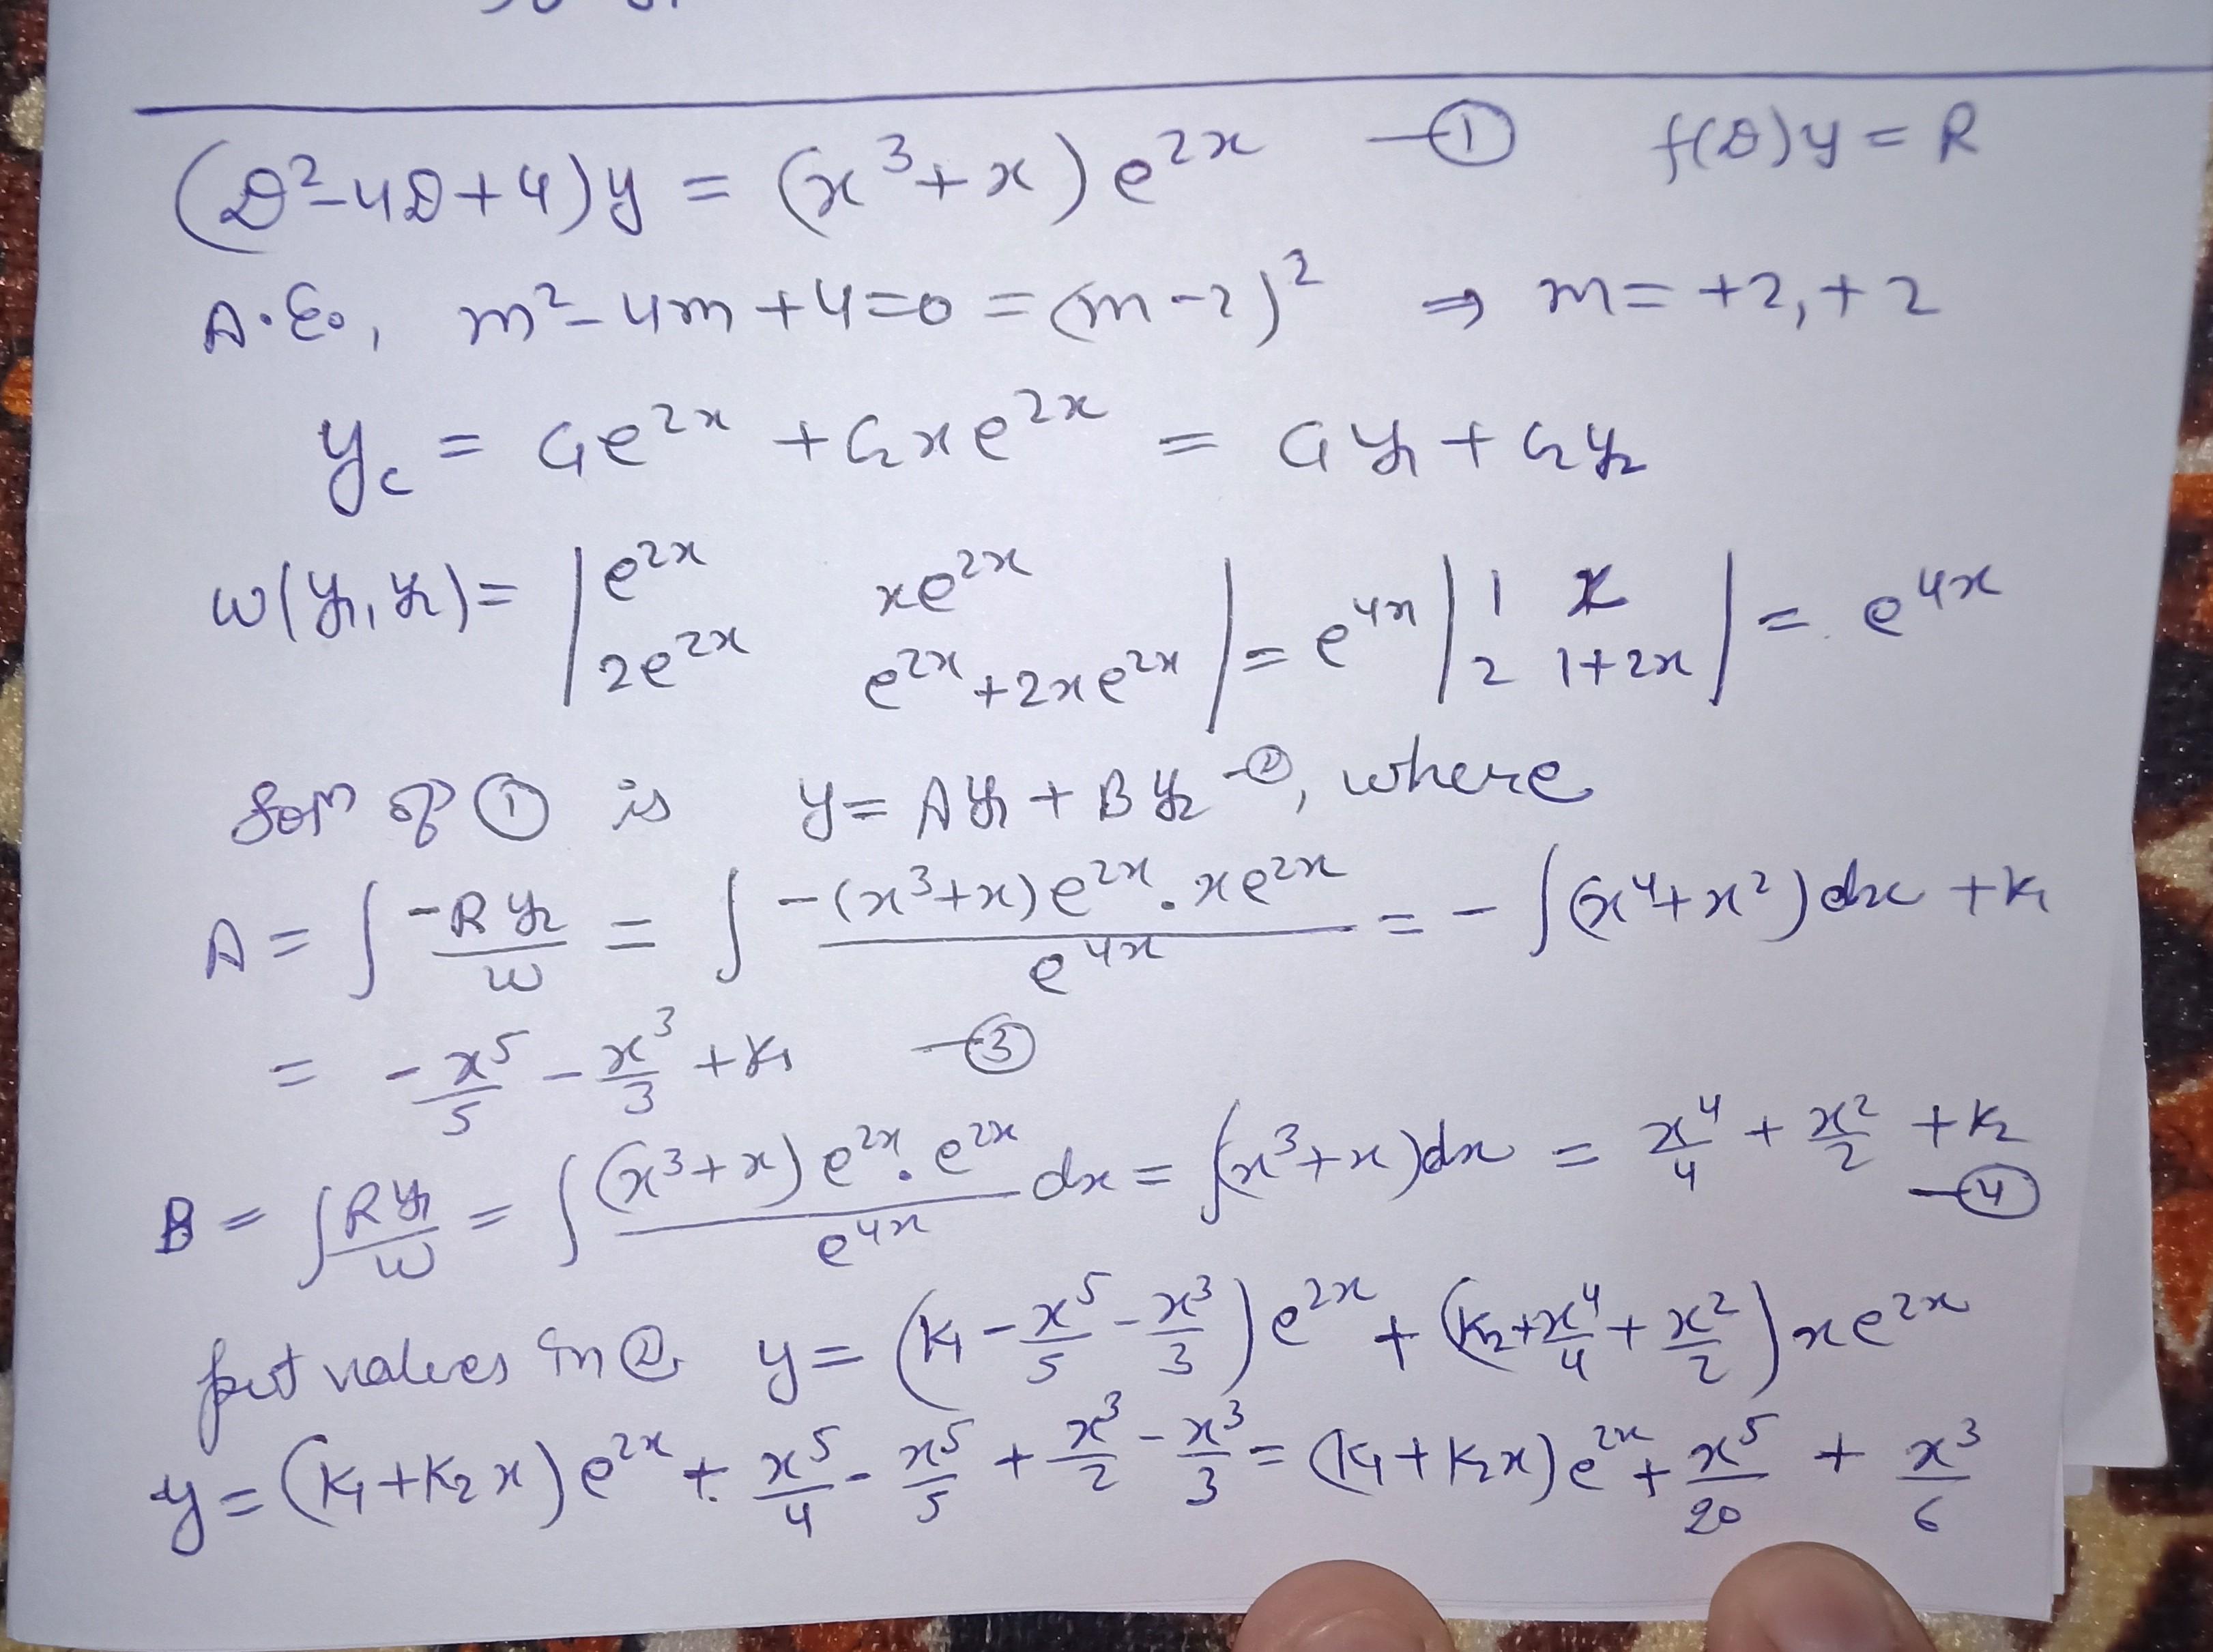 (D²-4D+4)y = (x³+x)e²ˣ —① f(D)y = R
A.E., m²-4m+4=0=(m-2)² ⇒ m=+2,+2
y_c = C₁e²ˣ + C₂xe²ˣ = C₁y₁ + C₂y₂
W(y₁,y₂)= |e²ˣ xe²ˣ; 2e²ˣ e²ˣ+2xe²ˣ| = e⁴ˣ |1 x; 2 1+2x| = e⁴ˣ
Solⁿ of ① is y = Ay₁ + By₂ —②, where
A = ∫ -Ry₂/W = ∫ -(x³+x)e²ˣ.xe²ˣ/e⁴ˣ = -∫(x⁴+x²)dx + k₁
= -x⁵/5 - x³/3 + k₁ —③
B = ∫Ry₁/W = ∫ (x³+x)e²ˣ.e²ˣ/e⁴ˣ dx = ∫(x³+x)dx = x⁴/4 + x²/2 + k₂ —④
put values in ② y = (k₁ - x⁵/5 - x³/3)e²ˣ + (k₂ + x⁴/4 + x²/2)xe²ˣ
y = (k₁+k₂x)e²ˣ + x⁵/4 - x⁵/5 + x³/2 - x³/3 = (k₁+k₂x)e²ˣ + x⁵/20 + x³/6